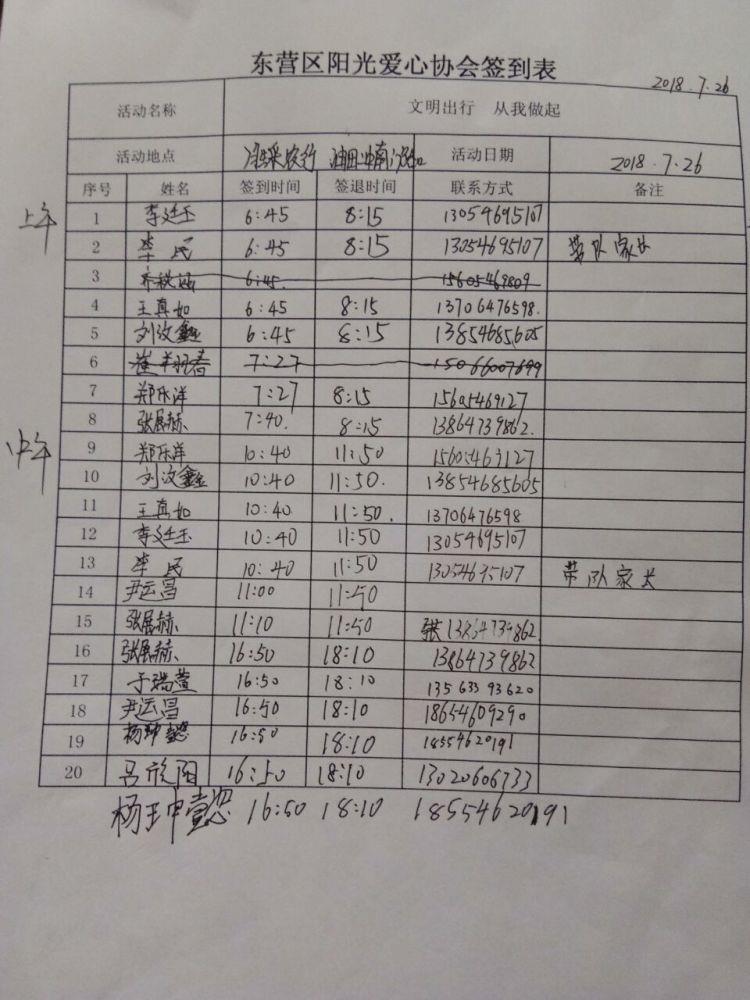 东营区阳光爱心协会签到表
2018.7.26
活动名称 文明出行 从我做起
活动地点 农行 活动日期 2018.7.26
序号 姓名 签到时间 签退时间 联系方式 备注
上午
1 李廷玉 6:45 8:15 13054695107
2 李民 6:45 8:15 13054695107 带队家长
3 6:45 15605469809
4 王真如 6:45 8:15 13706476598.
5 刘汶鑫 6:45 8:15 13854685605
6 7:27 15066007699
7 郑乐洋 7:27 8:15 15605469127
8 张展赫 7:40. 8:15 13864739862.
中午
9 郑乐洋 10:40 11:50 15605463127
10 刘汶鑫 10:40 11:50. 13854685605
11 王真如 10:40 11:50. 13706476598
12 李廷玉 10:40 11:50 13054695107
13 李民 10:40 11:50 13054695107 带队家长
14 尹运昌 11:00 11:50
15 张展赫 11:10 11:50 张13864739862
16 张展赫 16:50 18:10 13864739862
17 于瑞萱 16:50 18:10 13563393620
18 尹运昌 16:50 18:10 18654609290
19 杨坤懿 16:50 18:10 18554620191
20 吕欣阳 16:50 18:10 13020606733
杨坤懿 16:50 18:10 18554620191